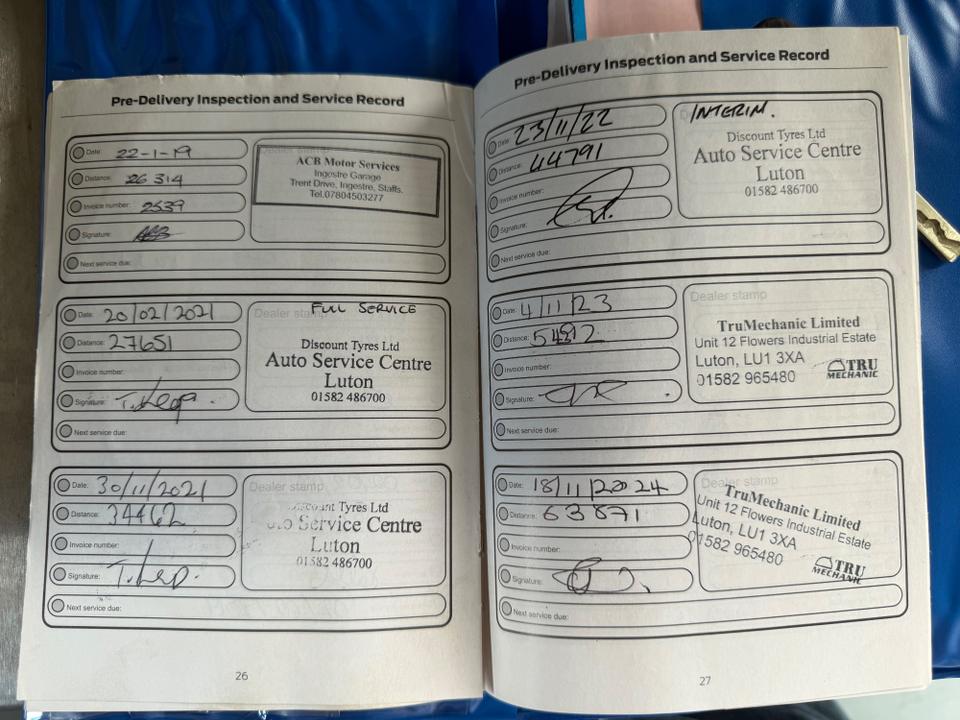 Pre-Delivery Inspection and Service Record
Date: 22-1-19
Distance: 26 314
Invoice number: 2539
Signature:
Next service due:
ACB Motor Services
Ingestre Garage
Trent Drive, Ingestre, Staffs.
Tel.07804503277
Date: 20/02/2021
Distance: 27651
Invoice number:
Signature:
Next service due:
Dealer stamp
FULL SERVICE
Discount Tyres Ltd
Auto Service Centre
Luton
01582 486700
Date: 30/11/2021
Distance: 34462
Invoice number:
Signature:
Next service due:
Dealer stamp
Discount Tyres Ltd
Auto Service Centre
Luton
01582 486700
26
Pre-Delivery Inspection and Service Record
Date: 23/11/22
Distance: 44791
Invoice number:
Signature:
Next service due:
INTERIM.
Discount Tyres Ltd
Auto Service Centre
Luton
01582 486700
Date: 4/11/23
Distance:
Invoice number:
Signature:
Next service due:
Dealer stamp
TruMechanic Limited
Unit 12 Flowers Industrial Estate
Luton, LU1 3XA
01582 965480
TRU
MECHANIC
Date: 18/11/2024
Distance: 63871
Invoice number:
Signature:
Next service due:
Dealer stamp
TruMechanic Limited
Unit 12 Flowers Industrial Estate
Luton, LU1 3XA
01582 965480
TRU
MECHANIC
27